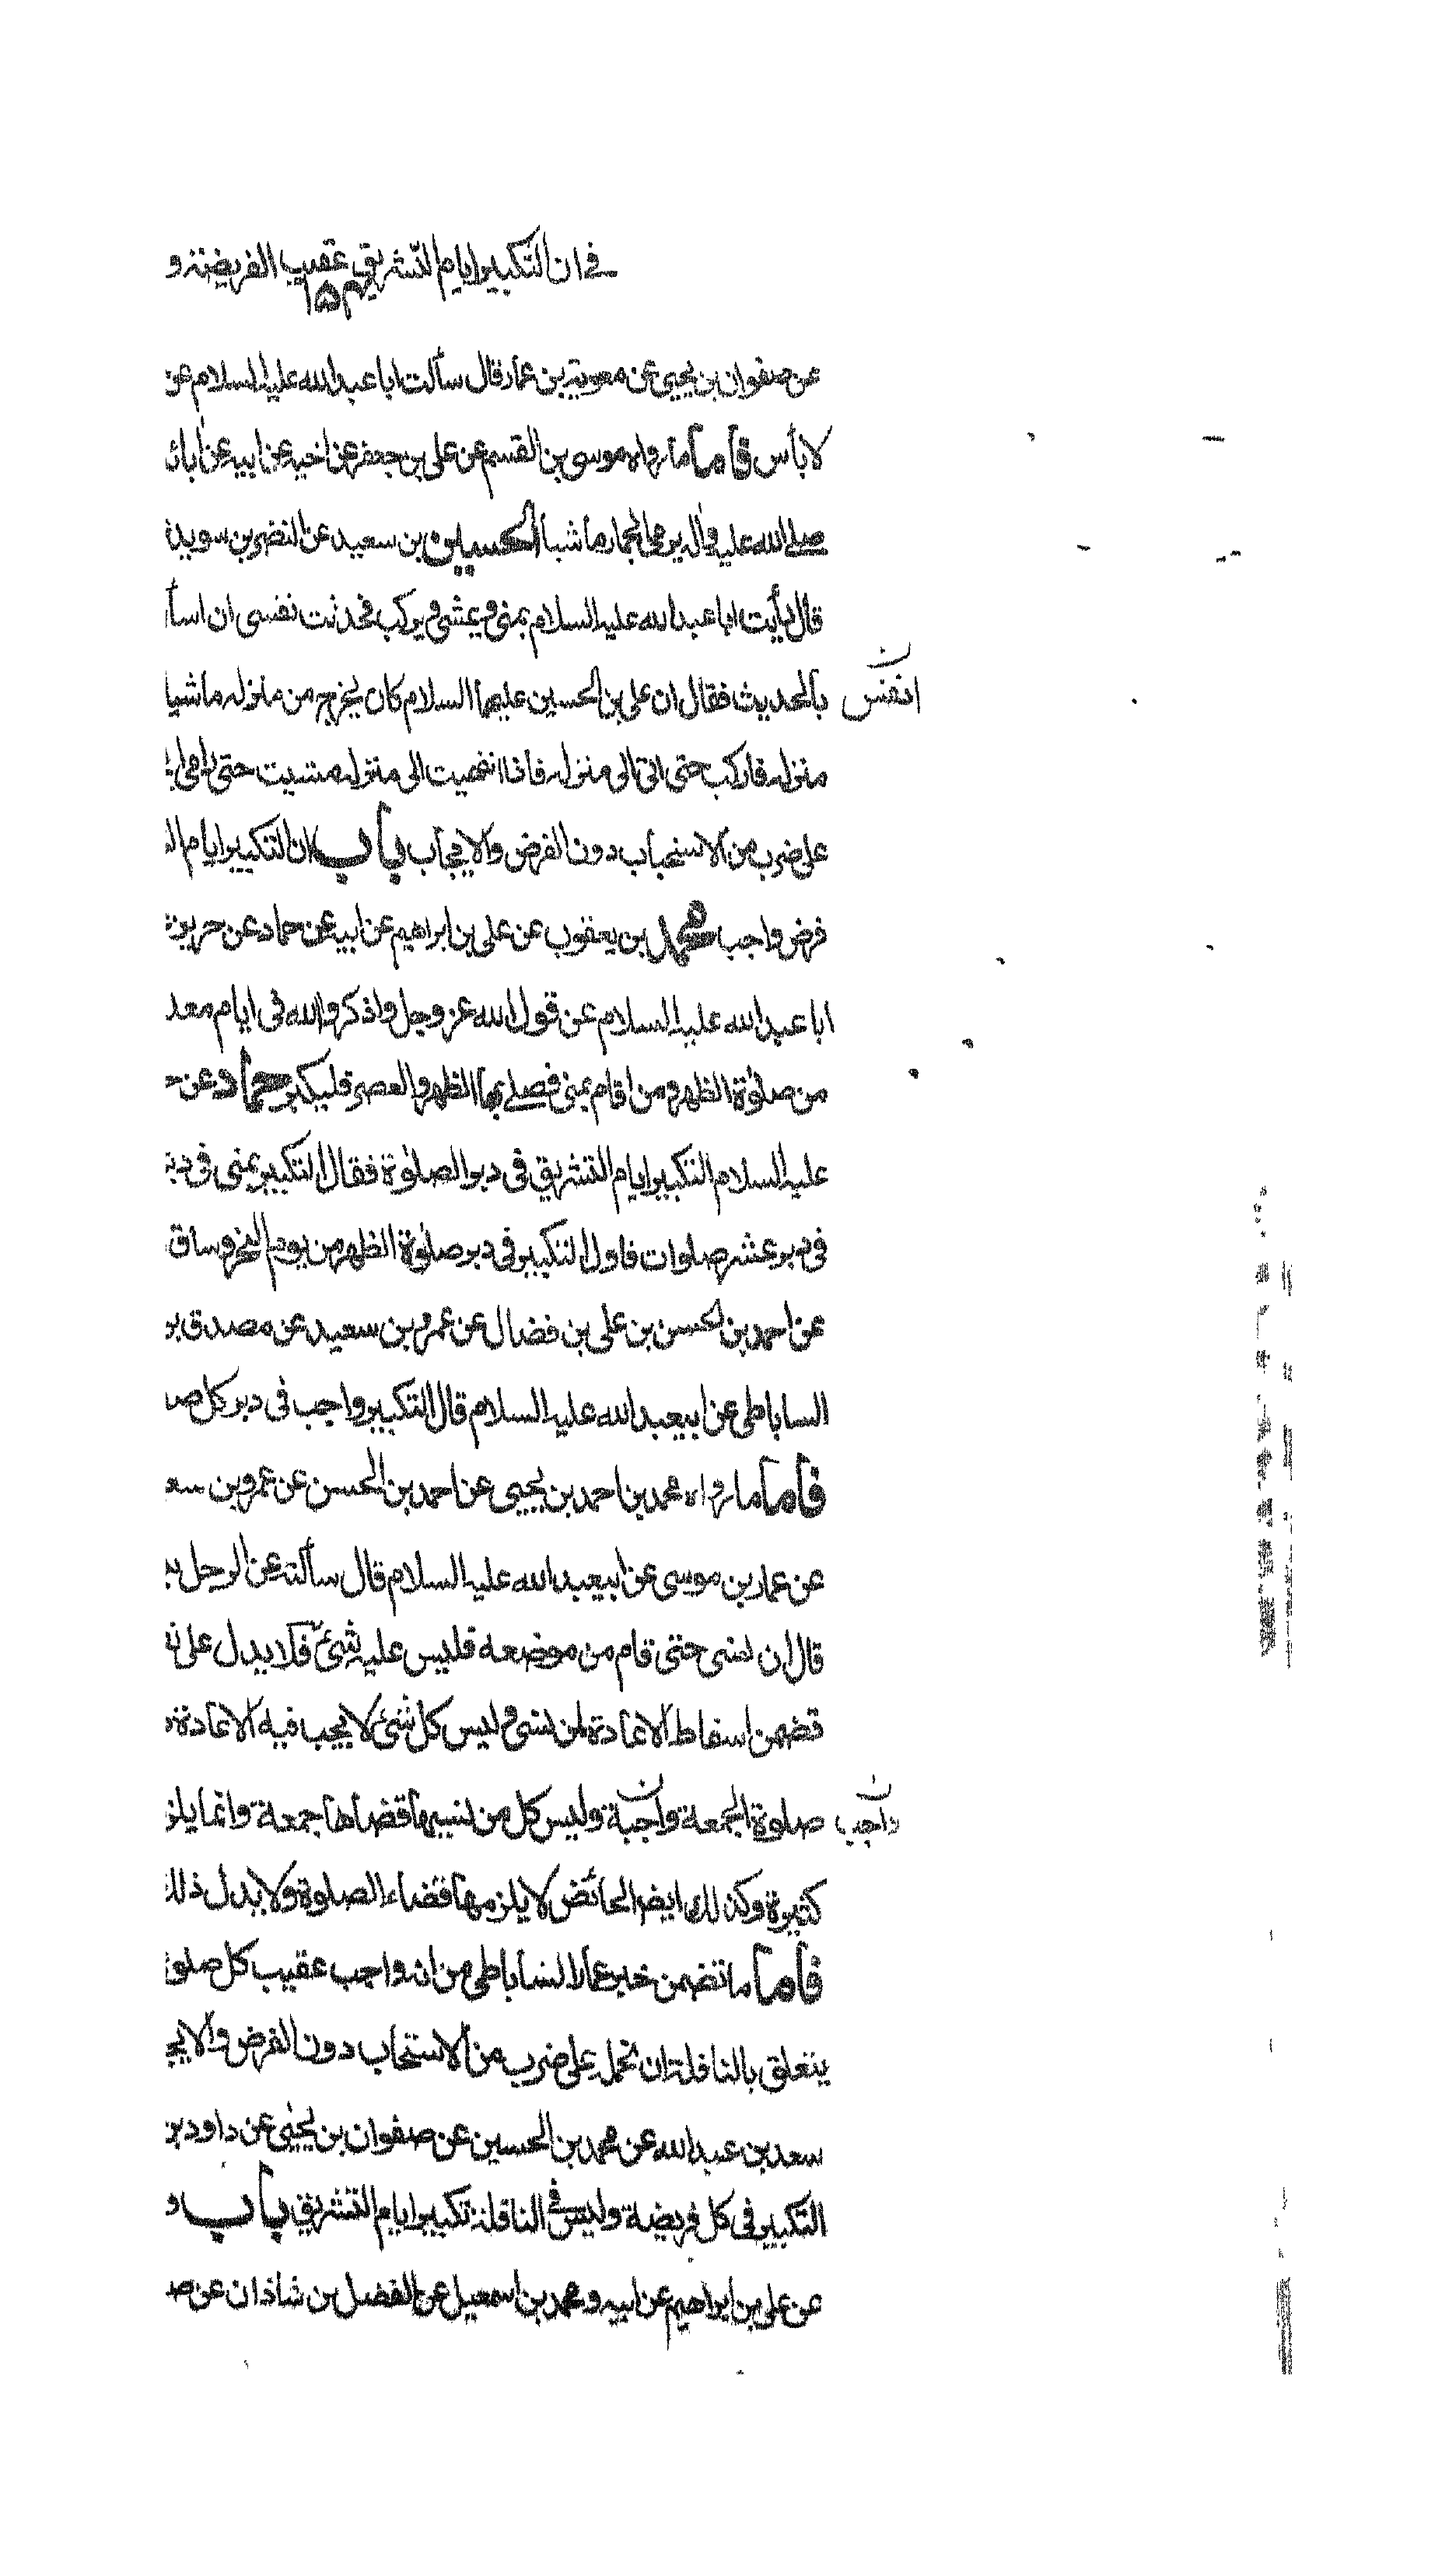 في ان التكبير ايام التشريق عقيب الفريضة و
عن صفوان بن يحيى عن معوية بن عمار قال سألت ابا عبد الله عليه السلام عن
لا بأس فاما ما رواه موسى بن القسم عن على بن جعفر عن اخيه عن ابيه عن ابائ
صلى الله عليه واله يرمى الجمار ماشيا الحسين بن سعيد عن النضر بن سويد
قال رأيت ابا عبد الله عليه السلام بمنى يمشى ويركب فحدثت نفسى ان اسأ
بالحديث فقال ان على بن الحسين عليهما السلام كان يخرج من منزله ماشيا
انفس
منزله فاركب حتى اتى الى منزله فاذا انتهيت الى منزله مشيت حتى ارمى
على ضرب من الاستحباب دون الفرض والايجاب باب ان التكبير ايام
فرض واجب محمد بن يعقوب عن على بن ابراهيم عن ابيه عن حماد عن حريز
ابا عبد الله عليه السلام عن قول الله عز وجل واذكروا الله فى ايام معد
من صلوة الظهر ومن اقام بمنى فصلى بها الظهر والعصر فليكبر حماد عن
عليه السلام التكبير ايام التشريق فى دبر الصلوة فقال التكبير بمنى فى دبر
فى دبر عشر صلوات فاول التكبير فى دبر صلوة الظهر من يوم النحر وساق
عن احمد بن الحسن بن على بن فضال عن عمرو بن سعيد عن مصدق
الساباطى عن ابيعبد الله عليه السلام قال التكبير واجب فى دبر كل ص
فاما ما رواه محمد بن احمد بن يحيى عن احمد بن الحسن عن عمرو بن سعي
عن عمار بن موسى عن ابيعبد الله عليه السلام قال سألته عن الرجل
قال ان نسى حتى قام من موضعه فليس عليه شئ فلا يدل على
تضمن اسقاط الاعادة لمن نسى وليس كل شئ لا يجب فيه الاعادة
صلوة الجمعة واجبة وليس كل من نسيها قضاها جمعة وانما يلز
واجب
كثيرة وكذلك ايضا الحائض لا يلزمها قضاء الصلوة ولا يدل ذلك
فاما ما تضمن خبر عمار الساباطى من انه واجب عقيب كل صلو
يتعلق بالنافلة ان نحمله على ضرب من الاستحباب دون الفرض والايج
سعد بن عبد الله عن محمد بن الحسين عن صفوان بن يحيى عن داود
التكبير فى كل فريضة وليس فى النافلة تكبير ايام التشريق باب و
عن على بن ابراهيم عن ابيه ومحمد بن اسمعيل عن الفضل بن شاذان عن ص